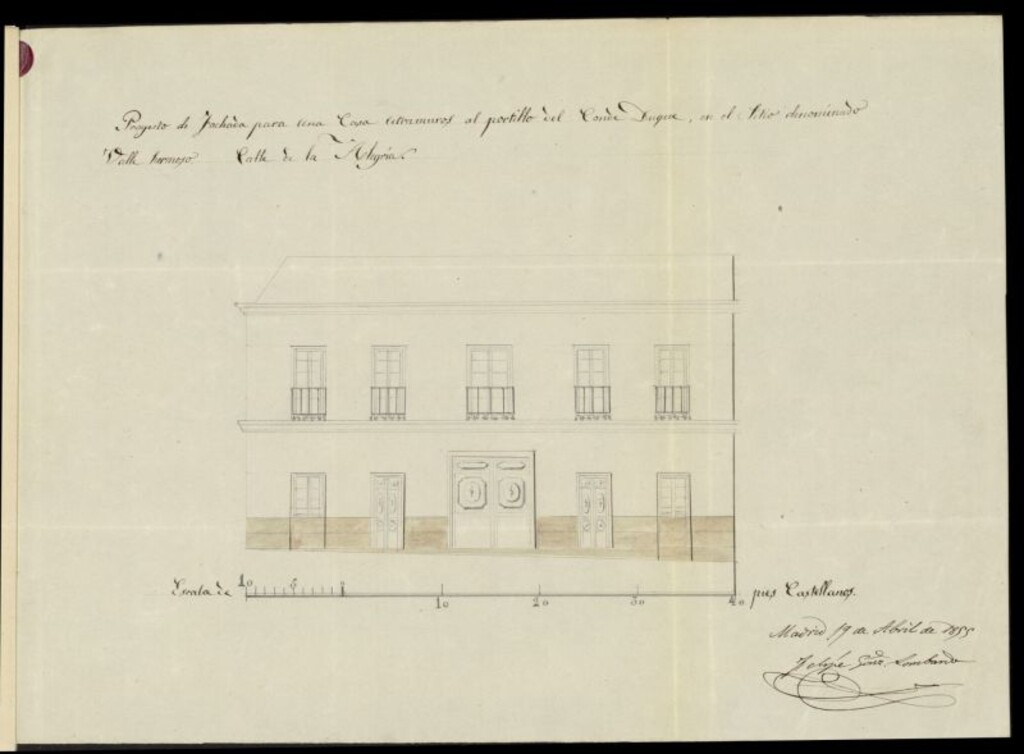 Proyecto de Fachada para una Casa extramuros al portillo del Conde Duque, en el Sitio denominado
Valle hermoso Calle de la Alegria.
Escala de 10 5 0 10 20 30 40 pies Castellanos.
Madrid 19 de Abril de 1855
Felipe Lombardo